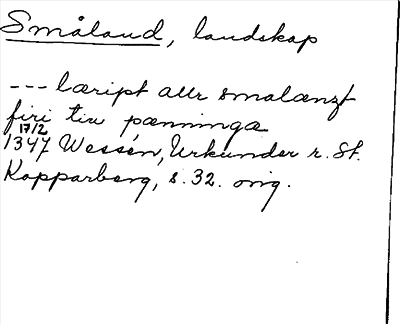 Småland, landskap
--- læript allr smalænzt
firi tiu pænninga
17/2
1347 Wessén, Urkunder r. St.
Kopparberg, s. 32. orig.